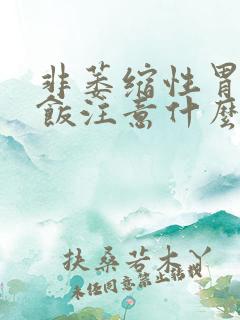 非萎缩性胃
飯注意什麽
扶桑若木丫
未经同意禁止转载